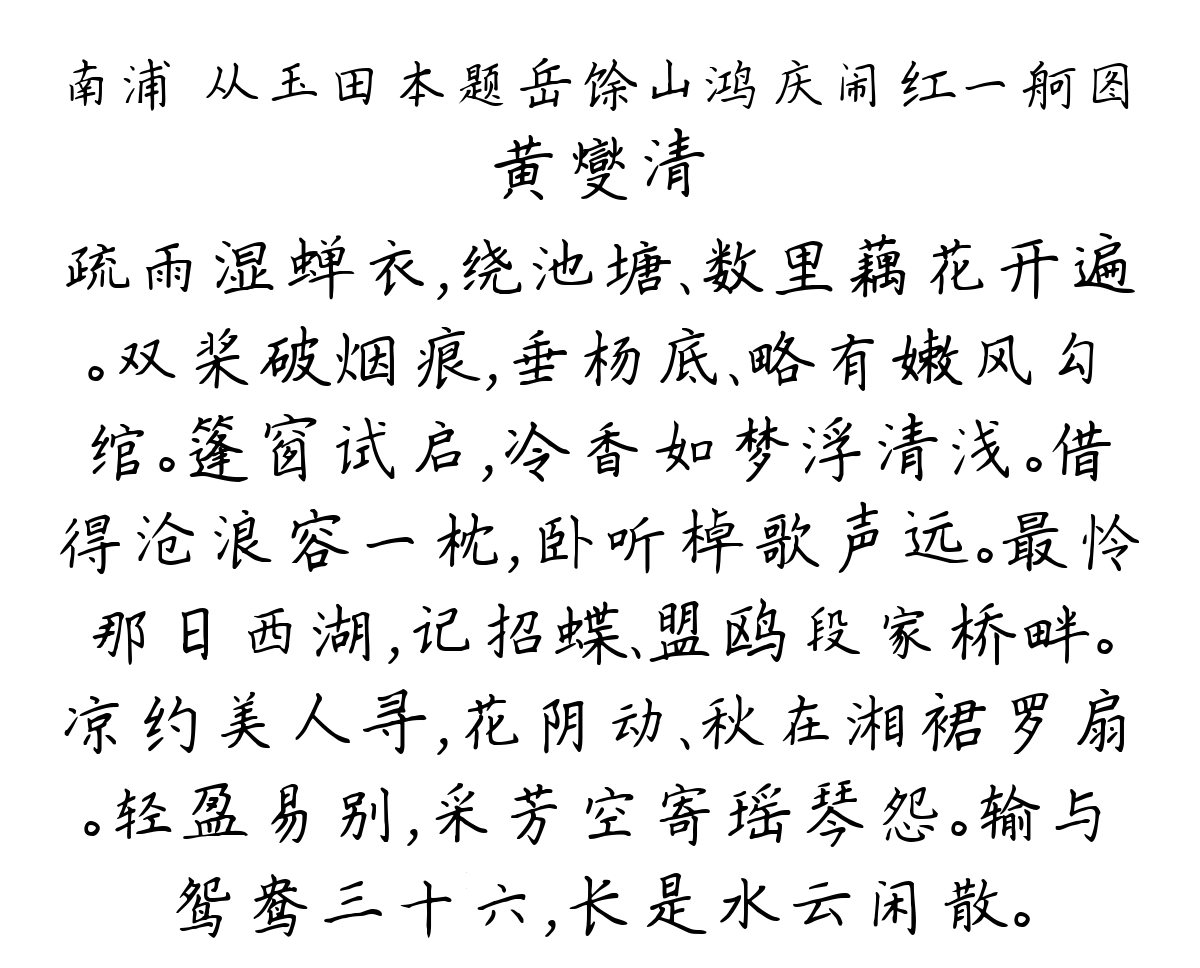 南浦 从玉田本题岳馀山鸿庆闹红一舸图
黄燮清
疏雨湿蝉衣,绕池塘、数里藕花开遍
。双桨破烟痕,垂杨底、略有嫩风勾
绾。篷窗试启,冷香如梦浮清浅。借
得沧浪容一枕,卧听棹歌声远。最怜
那日西湖,记招蝶、盟鸥段家桥畔。
凉约美人寻,花阴动、秋在湘裙罗扇
。轻盈易别,采芳空寄瑶琴怨。输与
鸳鸯三十六,长是水云闲散。